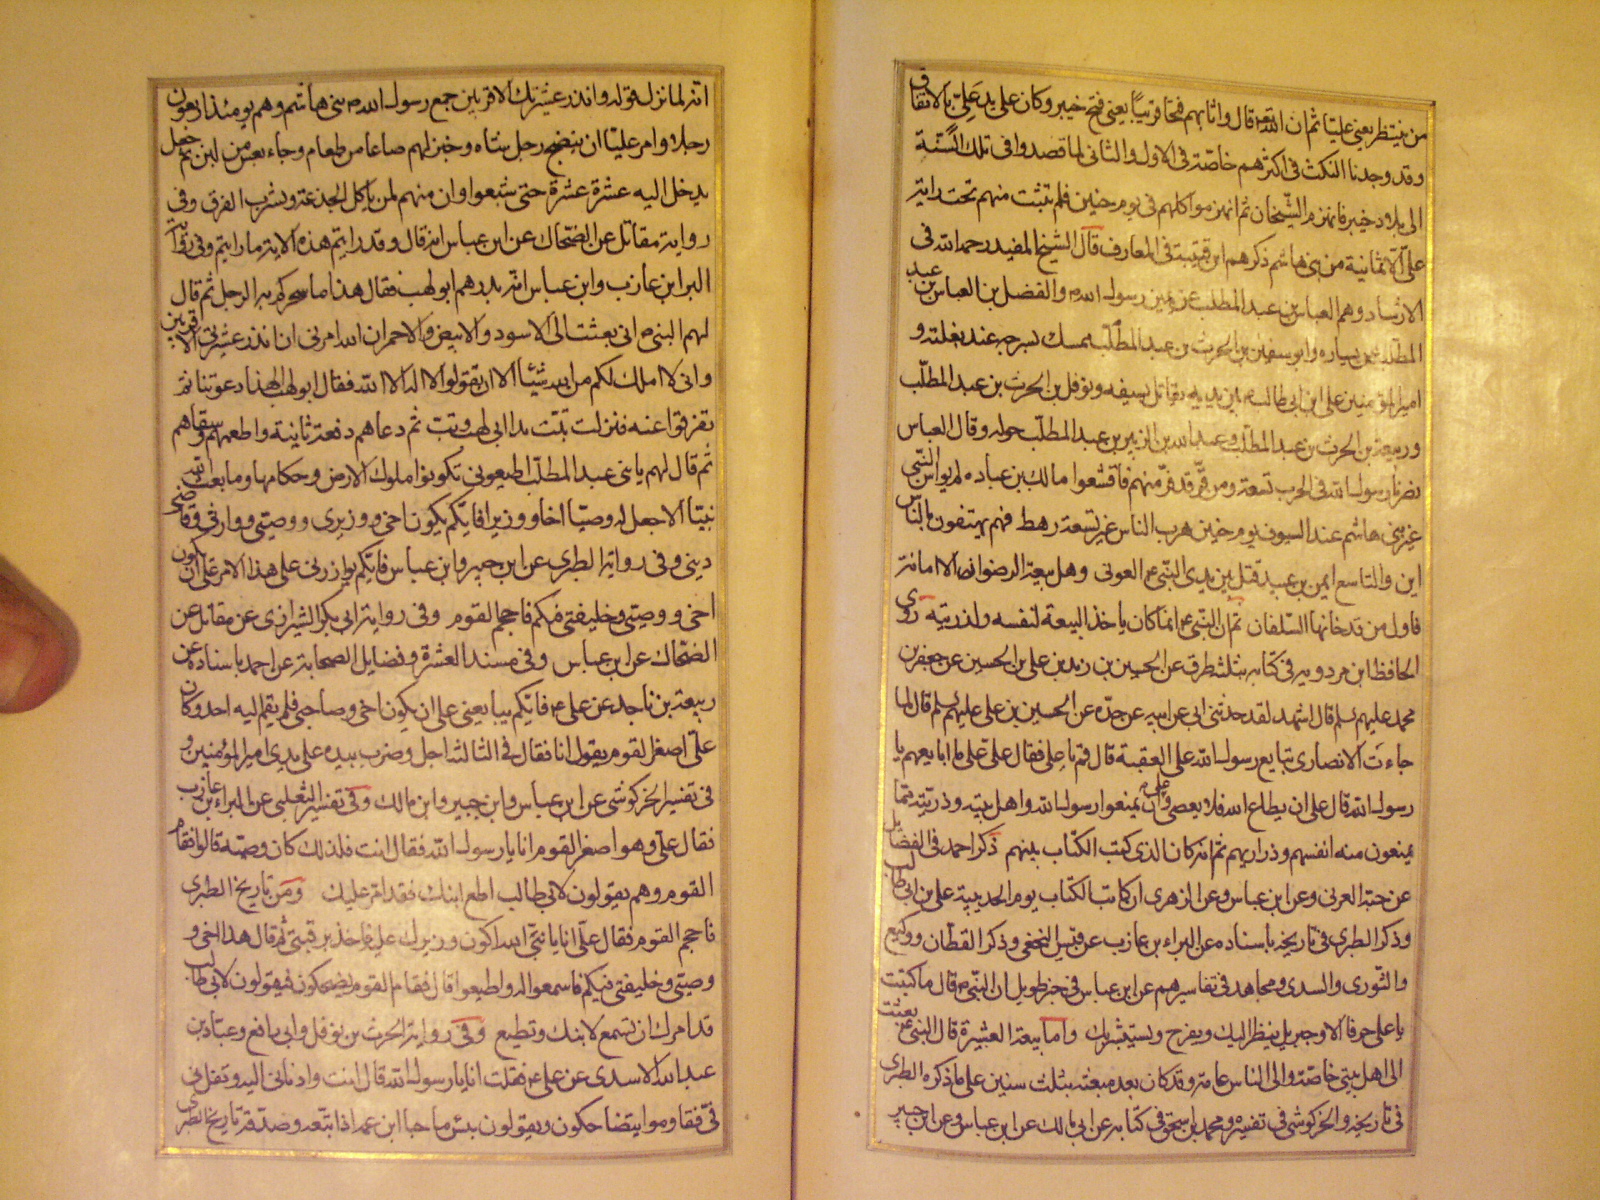 من ينتظر يعنى عليّا ثم ان الله تعالى قال واثابهم فتحا قريبًا يعنى فتح خيبر وكان على يد علىّ بالاتفاق
وقد وجدنا النكث فى اكثرهم خاصّة فى الاول والثانى لما قصدوا فى تلك السّنة
الى بلاد خيبر فانهزم الشّيخان ثم انهزموا كلهم فى يوم حنين فلم يثبت منهم تحت راية
علىّ الا ثمانية من بنى هاشم ذكرهم ابن قتيبة فى المعارف قال الشيخ المفيد رحمه الله فى
الارشاد وهم العباس بن عبد المطلب عن يمين رسول الله والفضل بن العباس بن عبد
المطلب عن يساره وابو سفين بن الحرث بن عبد المطّلب ممسك بسرجه عند بغلته و
امير المؤمنين على ابن ابى طالب بين يديه يقاتل بسيفه ونوفل بن الحرث بن عبد المطلّب
وربيعة بن الحرث بن عبد المطلّب وعبد الله بن الزبير بن عبد المطلّب حوله وقال العباس
نصرنا رسول الله فى الحرب تسعة ومن فرّ قد فرّ منهم فاقشعوا مالك بن عباده لم يواس النّبى
غير بنى هاشم عند السيوف يوم حنين هرب الناس غير تسعة رهط فهم يهتفون بالناس
اين والتاسع ايمن بن عبيد قتل بين يدى النّبى العونى وهل بيعة الرضوان الا امانة
فاول من قد خانها السّلفان ثم ان النّبى انما كان ياخذ البيعة لنفسه ولذريّته روى
الحافظ ابن مردويه فى كتابه بثلث طرق عن الحسين بن زيد بن على بن الحسين عن جعفر بن
محمد عليهم السلم قال اشهد لقد حدثنى ابى عن ابيه عن جدّه عن الحسين بن على عليهم السلم قال لما
جاءت الانصار تبايع رسول الله على العقبة قال قم يا على فقال علىّ على ما ابايعهم يا
رسول الله قال على ان يطاع الله فلا يعصى وعلى ان يمنعوا رسول الله واهل بيته وذريّته ممّا
يمنعون منه انفسهم وذراريهم ثم انه كان الذى كتب الكتاب بينهم ذكر احمد فى الفضايل
عن حبة العرنى وعن ابن عباس وعن الزهرى ان كاتب الكتاب يوم الحديبية على بن ابى طالب
وذكر الطبرى فى تاريخه باسناده عن البراء بن عازب عن قيس النخعى وذكر القطان ووكيع
والثّورى والسدى ومجاهد فى تفاسيرهم عن ابن عباس فى خبر طويل ان النّبى قال ما كتبت
يا على حرفا الا وجبريل ينظر اليك ويفرح ويستبشر بك واما بيعة العشيرة قال النبى بعثت
الى اهل بيتى خاصّة والى الناس عامة وقد كان بعد مبعثه بثلث سنين على ما ذكره الطبرى
فى تاريخه والخركوشى فى تفسيره ومحمد بن اسحق فى كتابه عن ابى مالك عن ابن عباس وعن ابن جبير
انه لما نزل قوله وانذر عشيرتك الاقربين جمع رسول الله بنى هاشم وهم يومئذ اربعون
رجلا وامر عليّا ان ينضج رجل شاه وخبز لهم صاعا من طعام وجاء بعس من لبن ثم جعل
يدخل اليه عشرة عشرة حتى شبعوا وان منهم لمن ياكل الجذعة ويشرب الفرق وفى
رواية مقاتل عن الضحّاك عن ابن عباس انه قال وقد رايتم هذه الاية ما رايتم وفى رواية
البرا ابن عازب وابن عباس انه بدرهم ابو لهب فقال هذا ما سحركم به الرجل ثم قال
لهم النبى انى بعثت الى الاسود والابيض والاحمر ان الله امرنى ان انذر عشيرتى الاقربين
وانى لا املك لكم من الله شيئا الا ان تقولوا لا اله الا الله فقال ابو لهب الهذا دعوتنا ثم
تفرقوا عنه فنزلت تبّت يدا ابى لهب وتبّ ثم دعاهم دفعة ثانية واطعمهم وسقاهم
ثم قال لهم يا بنى عبد المطلّب اطيعونى تكونوا ملوك الارض وحكامها وما بعث الله
نبيّا الا جعل له وصيّا اخا ووزيرا فايّكم يكون اخى ووزيرى ووصيّى ووارثى وقاضى
دينى وفى رواية الطبرى عن ابن جبير وابن عباس فايّكم يوازرنى على هذا الامر على ان يكون
اخى ووصيّى وخليفتى فيكم فاحجم القوم وفى رواية ابى بكر الشيرازى عن مقاتل عن
الضحّاك عن ابن عباس وفى مسند العشرة وفضايل الصحابة عن احمد باسناده عن
ربيعة بن ناجد عن على فايّكم يبايعنى على ان يكون اخى وصاحبى فلم يقم اليه احد وكان
علىّ اصغر القوم يقول انا فقال فى الثالثة اجل وضرب بيده على يدى امير المؤمنين و
فى تفسير الخركوشى عن ابن عباس وابن جبير وابن مالك وفى تفسير الثعلبى عن البراء بن عازب
فقال علىّ وهو اصغر القوم انا يا رسول الله فقال انت فلذلك كان وصيّه قالوا فقام
القوم وهم يقولون لابى طالب اطع ابنك فقد امّر عليك ومن تاريخ الطبرى
فاحجم القوم فقال علىّ انا يا نبىّ الله اكون وزيرك عليه فاخذ برقبتى ثم قال هذا اخى و
وصيّى وخليفتى فيكم فاسمعوا له واطيعوا قال فقام القوم يضحكون فيقولون لابى طالب
قد امرك ان تسمع لابنك وتطيع وفى رواية الحرث بن نوفل وابى رافع وعباد بن
عبد الله الاسدى عن على فقلت انا يا رسول الله قال انت وادنانى اليه وتفل فى
فىّ فقاموا يتضاحكون ويقولون بئس ما حبا ابن عمه اذ اتّبعه وصدّقه تاريخ الطبرى